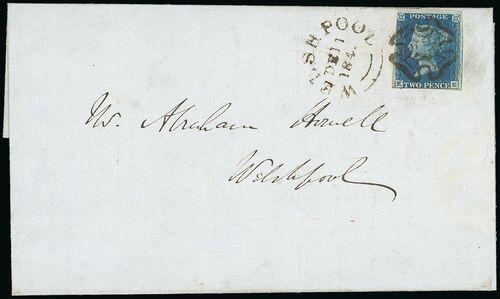 WELSH POOL
DE 11
184
POSTAGE
TWO PENCE
Mr. Abraham Howell
Welshpool